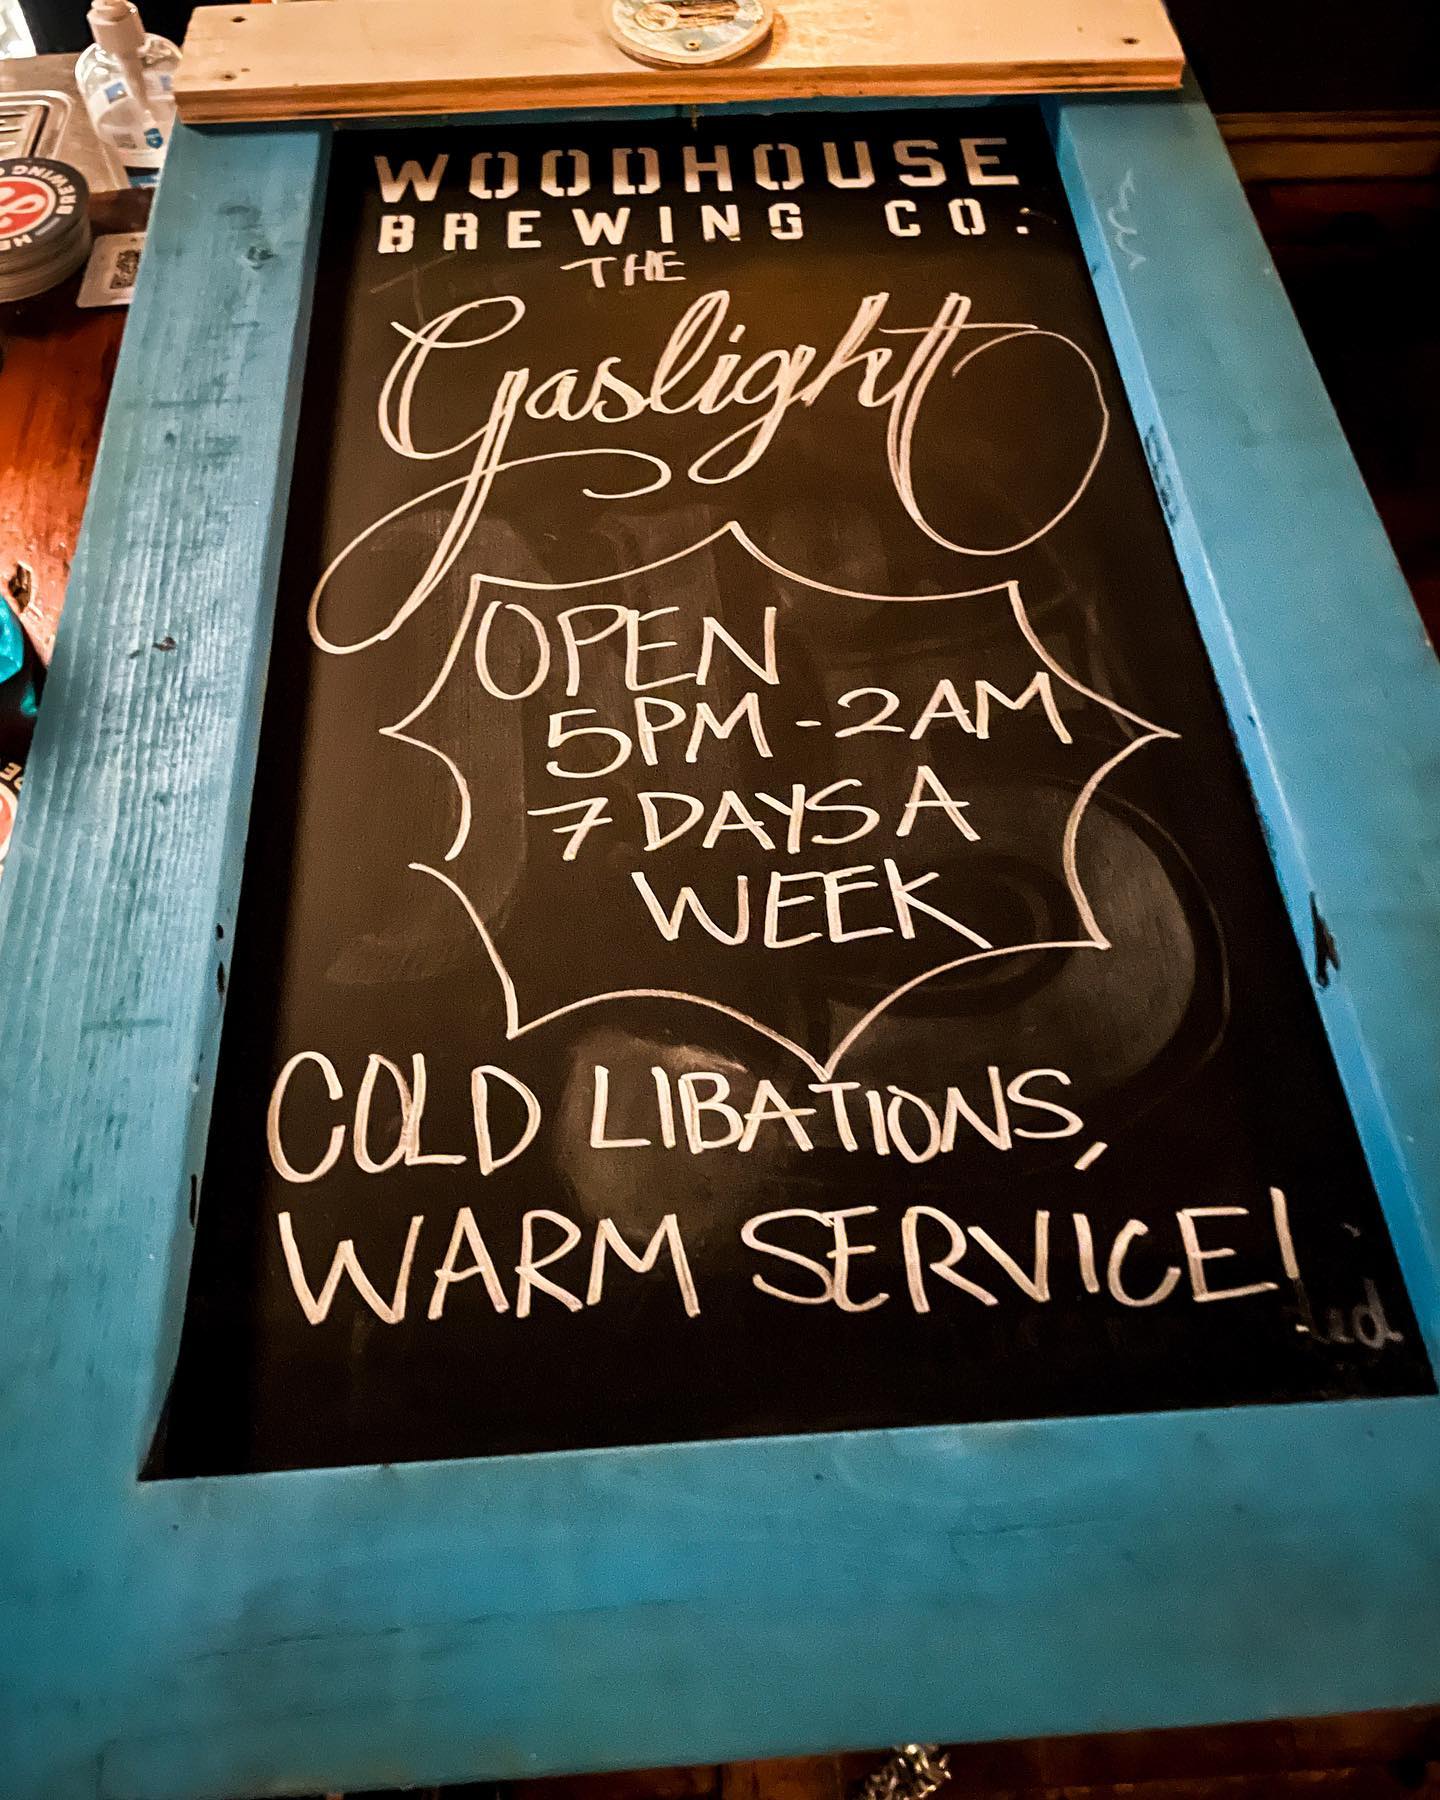 WOODHOUSE
BREWING CO.
THE
Gaslight
OPEN
5PM - 2AM
7 DAYS A
WEEK
COLD LIBATIONS,
WARM SERVICE!